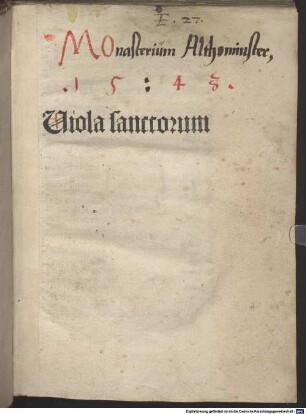 E. 27.
MOnasterium Althominster,
. 1 5 : 4 8 .
Viola sanctorum
Digitalisierung gefördert durch die Deutsche Forschungsgemeinschaft